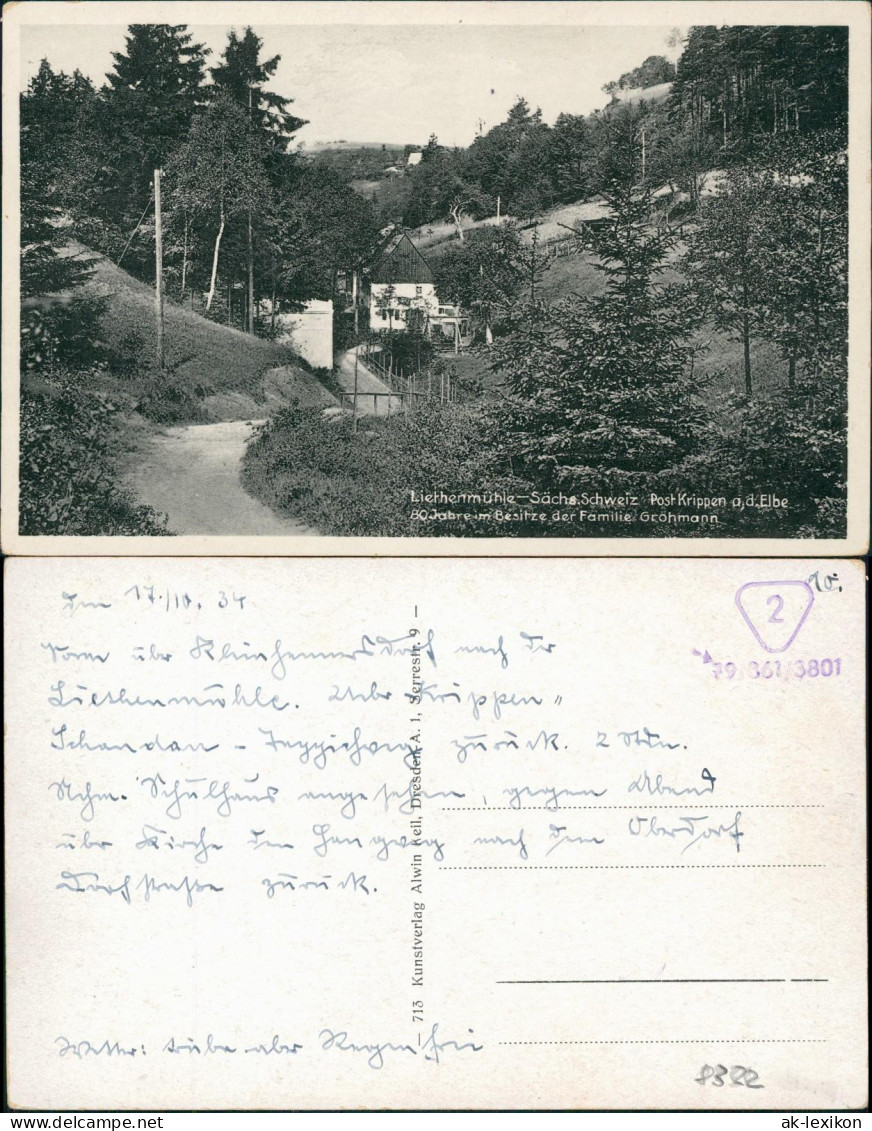 Liethenmühle-Sächs. Schweiz Post Krippen a,d. Elbe
80 Jahre im Besitze der Familie Gröhmann
den 17./10. 34
2
10.
79/861/3801
über Kleinhennersdorf nach der
Liethenmühle. Über Krippen"
Schandau - zurück. 2 Stdn.
Nchm. Schulhaus angesehen, gegen Abend
über Kirche den Hangweg nach dem Oberdorf
Dorfstraße zurück.
Wetter: trübe aber Regenfrei
— 713 Kunstverlag Alwin Keil, Dresden-A. 1, Serrestr. 9 —
8322
ak-ansichtskarten.de
ak-lexikon